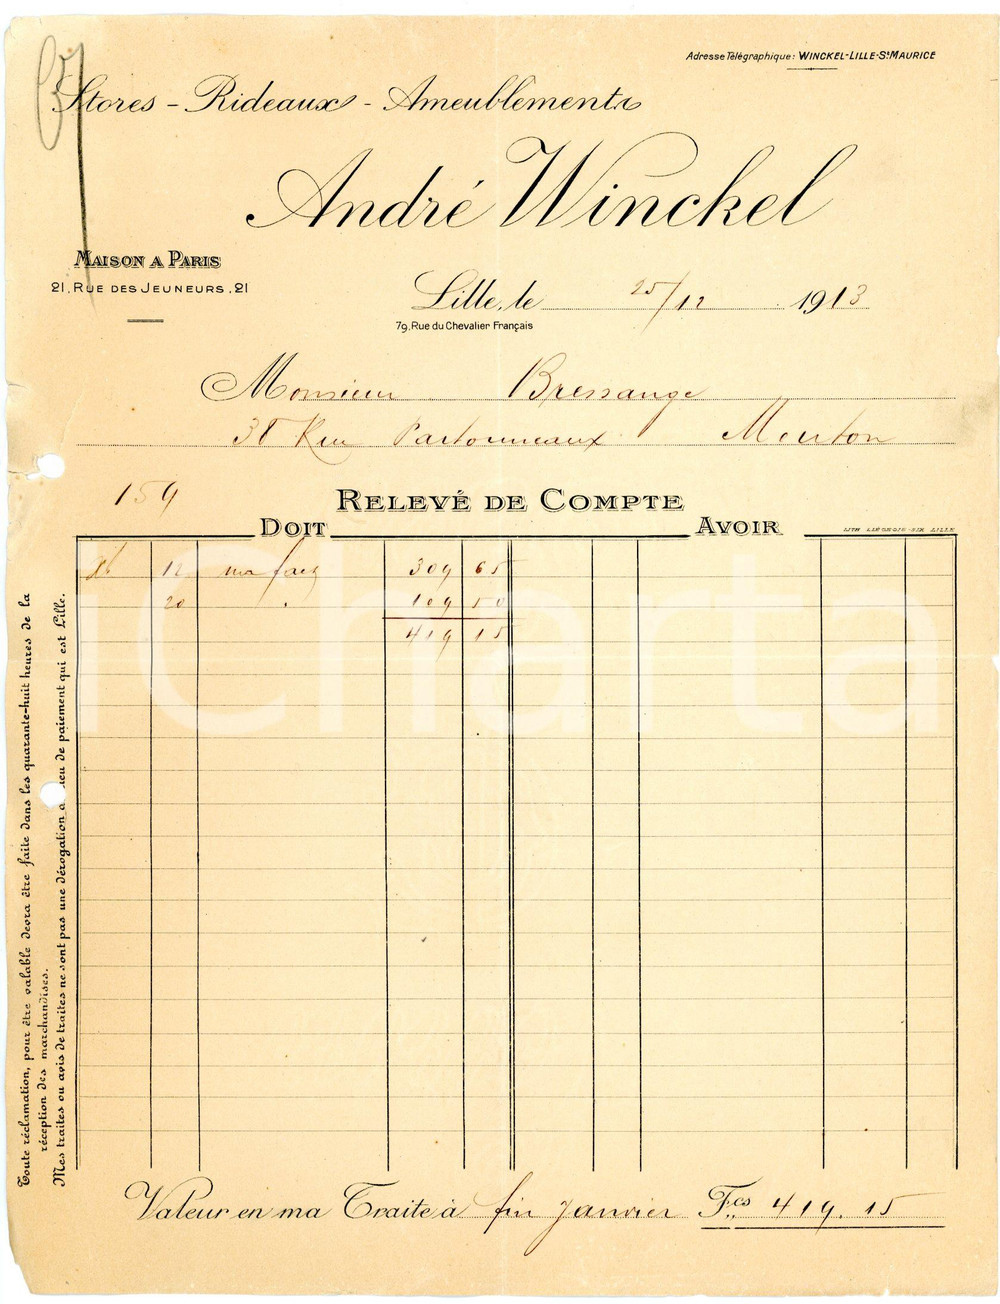 Adresse Télégraphique: WINCKEL-LILLE-St MAURICE
Stores - Rideaux - Ameublements
André Winckel
MAISON A PARIS
21, RUE DES JEUNEURS, 21
Lille, le 25/12 1913
79, Rue du Chevalier Français
Monsieur Bressange
38 Rue Partouneaux Menton
159
RELEVÉ DE COMPTE
DOIT AVOIR
LITH. LIÉGEOIS-SIX LILLE
12 ma fact 309 65
20 109 50
419 15
Toute réclamation, pour être valable devra être faite dans les quarante-huit heures de la
réception des marchandises.
Mes traites ou avis de traites ne sont pas une dérogation au lieu de paiement qui est Lille.
Valeur en ma Traite à fin Janvier Fcs 419. 15
iCharta